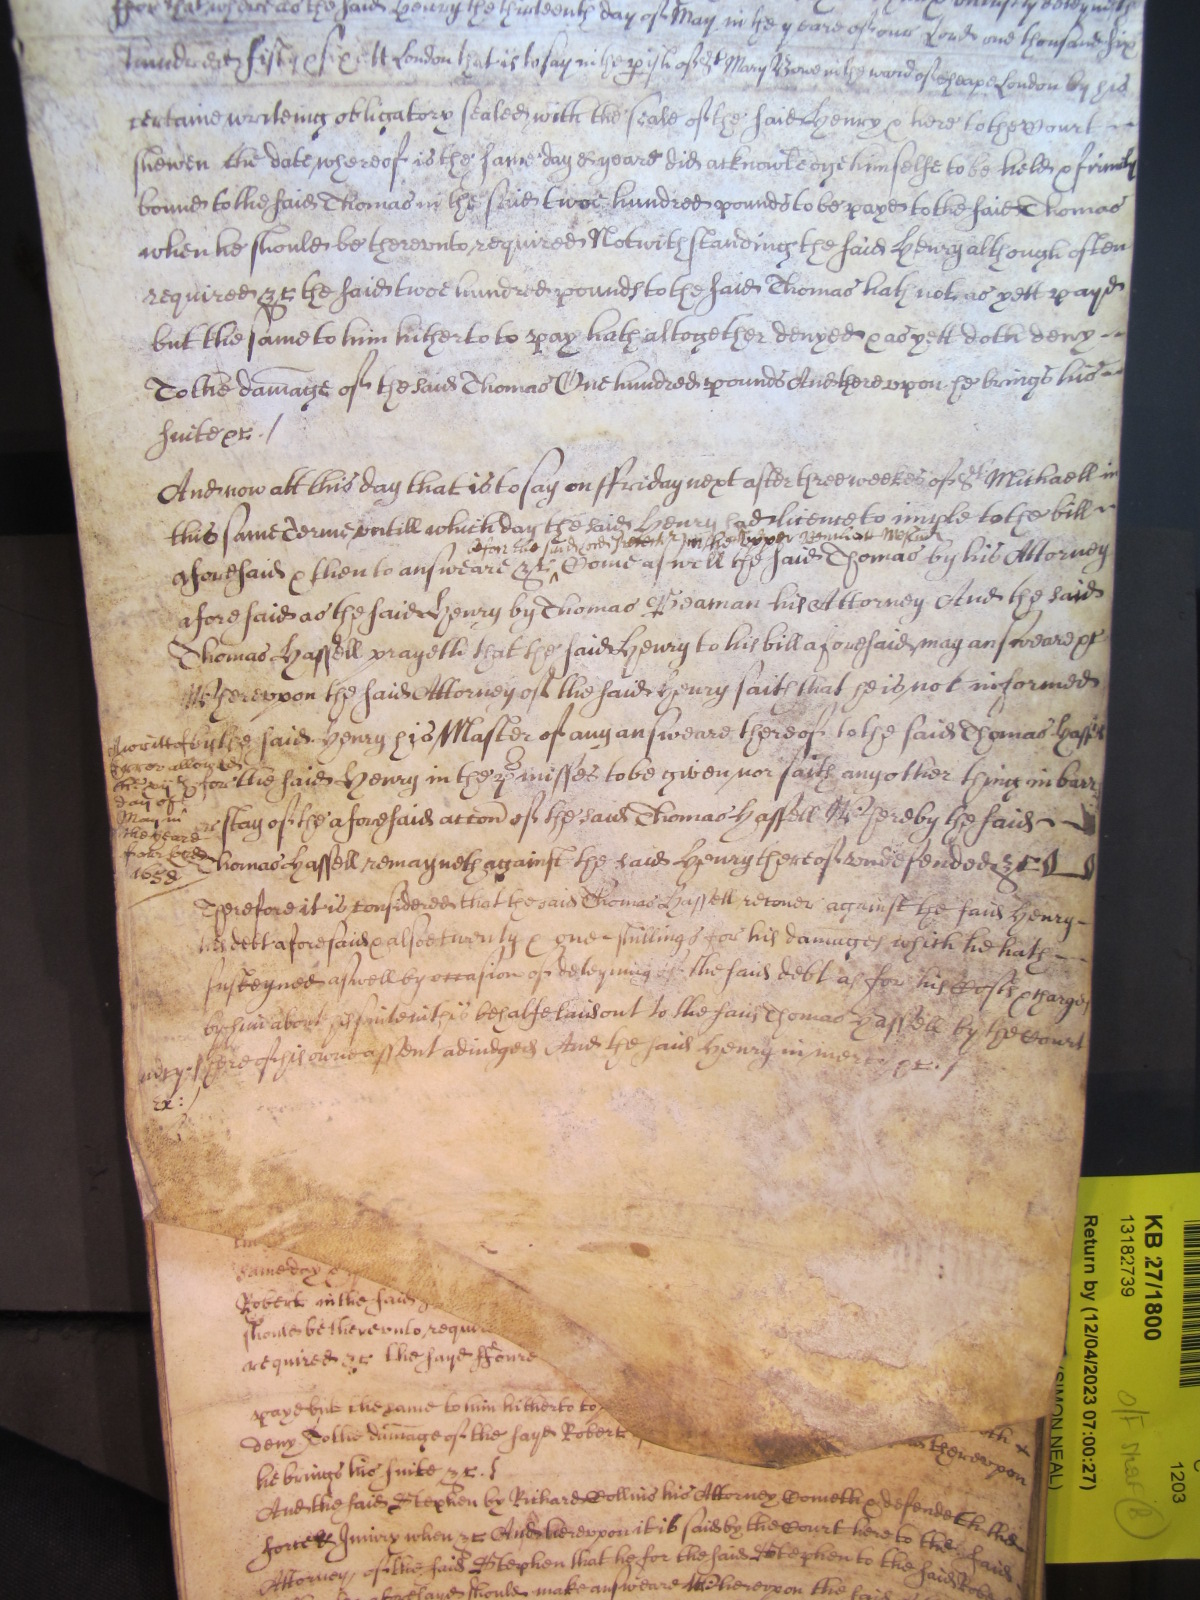 ffor that whereas the said Henry the thirteenth day of May in the yeare of our Lord one thousand six
hundred fifty & six att London that is to say in the pish of St Mary Bowe in the ward of Cheape London by his
certaine writeing obligatory sealed with the seale of the said Henry & here to the Court
shewen the date whereof is the same day & yeare did acknowledge himselfe to be held & firmely
bound to the said Thomas in the said twoe hundred pounds to be payd to the said Thomas
when he should be therevnto required Notwithstanding the said Henry although often
required &c the said twoe hundred pounds to the said Thomas hath not as yett payd
but the same to him hitherto to pay hath altogether denyed & as yett doth deny
To the damage of the said Thomas One hundred pounds And therevpon he brings his
suite &c./
And now att this day that is to say on ffriday next after three weekes of St Michaell in
this same Terme vntill which day the said Henry had licence to imple to the bill
aforesaid & then to answeare &c Come aswell the said Thomas by his Attorney
aforesaid as the said Henry by Thomas Beaman his Attorney And the said
Thomas Hassell prayeth that the said Henry to his bill aforesaid may answeare &c
Wherevpon the said Attorney of the said Henry saith that he is not informed
by the said Henry his Master of any answeare thereof to the said Thomas Hassell
for the said Henry in the pmisses to be given nor saith any other thing in barr
or stay of the aforesaid accon of the said Thomas Hassell Whereby the said
Thomas Hassell remayneth against the said Henry thereof vndefended &c
A writt of
error allowed
day of
May in
the yeare
1658
Therefore it is considered that the said Thomas Hassell recouer against the said Henry
his debt aforesaid & alsoe twenty & one shillings for his damages which he hath
susteyned aswell by occasion of deteyning of the said debt as for his Costs & charges
by him about his suite in this behalfe laid out to the said Thomas Hassell by the Court
here of his owne assent adiudged And the said Henry in mercy &c./
mcy:
same day &
Robert in the said
should be therevnto requir
required &c the sayd ffoure
paye but the same to him hitherto to
deny To the damage of the sayd Robert
therevpon
he brings his suite &c.
And the said Stephen by Richard Collins his Attorney Cometh & defendeth the
force & Iniury when &c And therevpon it is said by the Court here to the said
Attorney of the said Stephen that he for the said Stephen to the said Robe
should make answeare Wherevpon the said
KB 27/1800
13182739
Return by (12/04/2023 07:00:27)
(SIMON NEAL)
1203